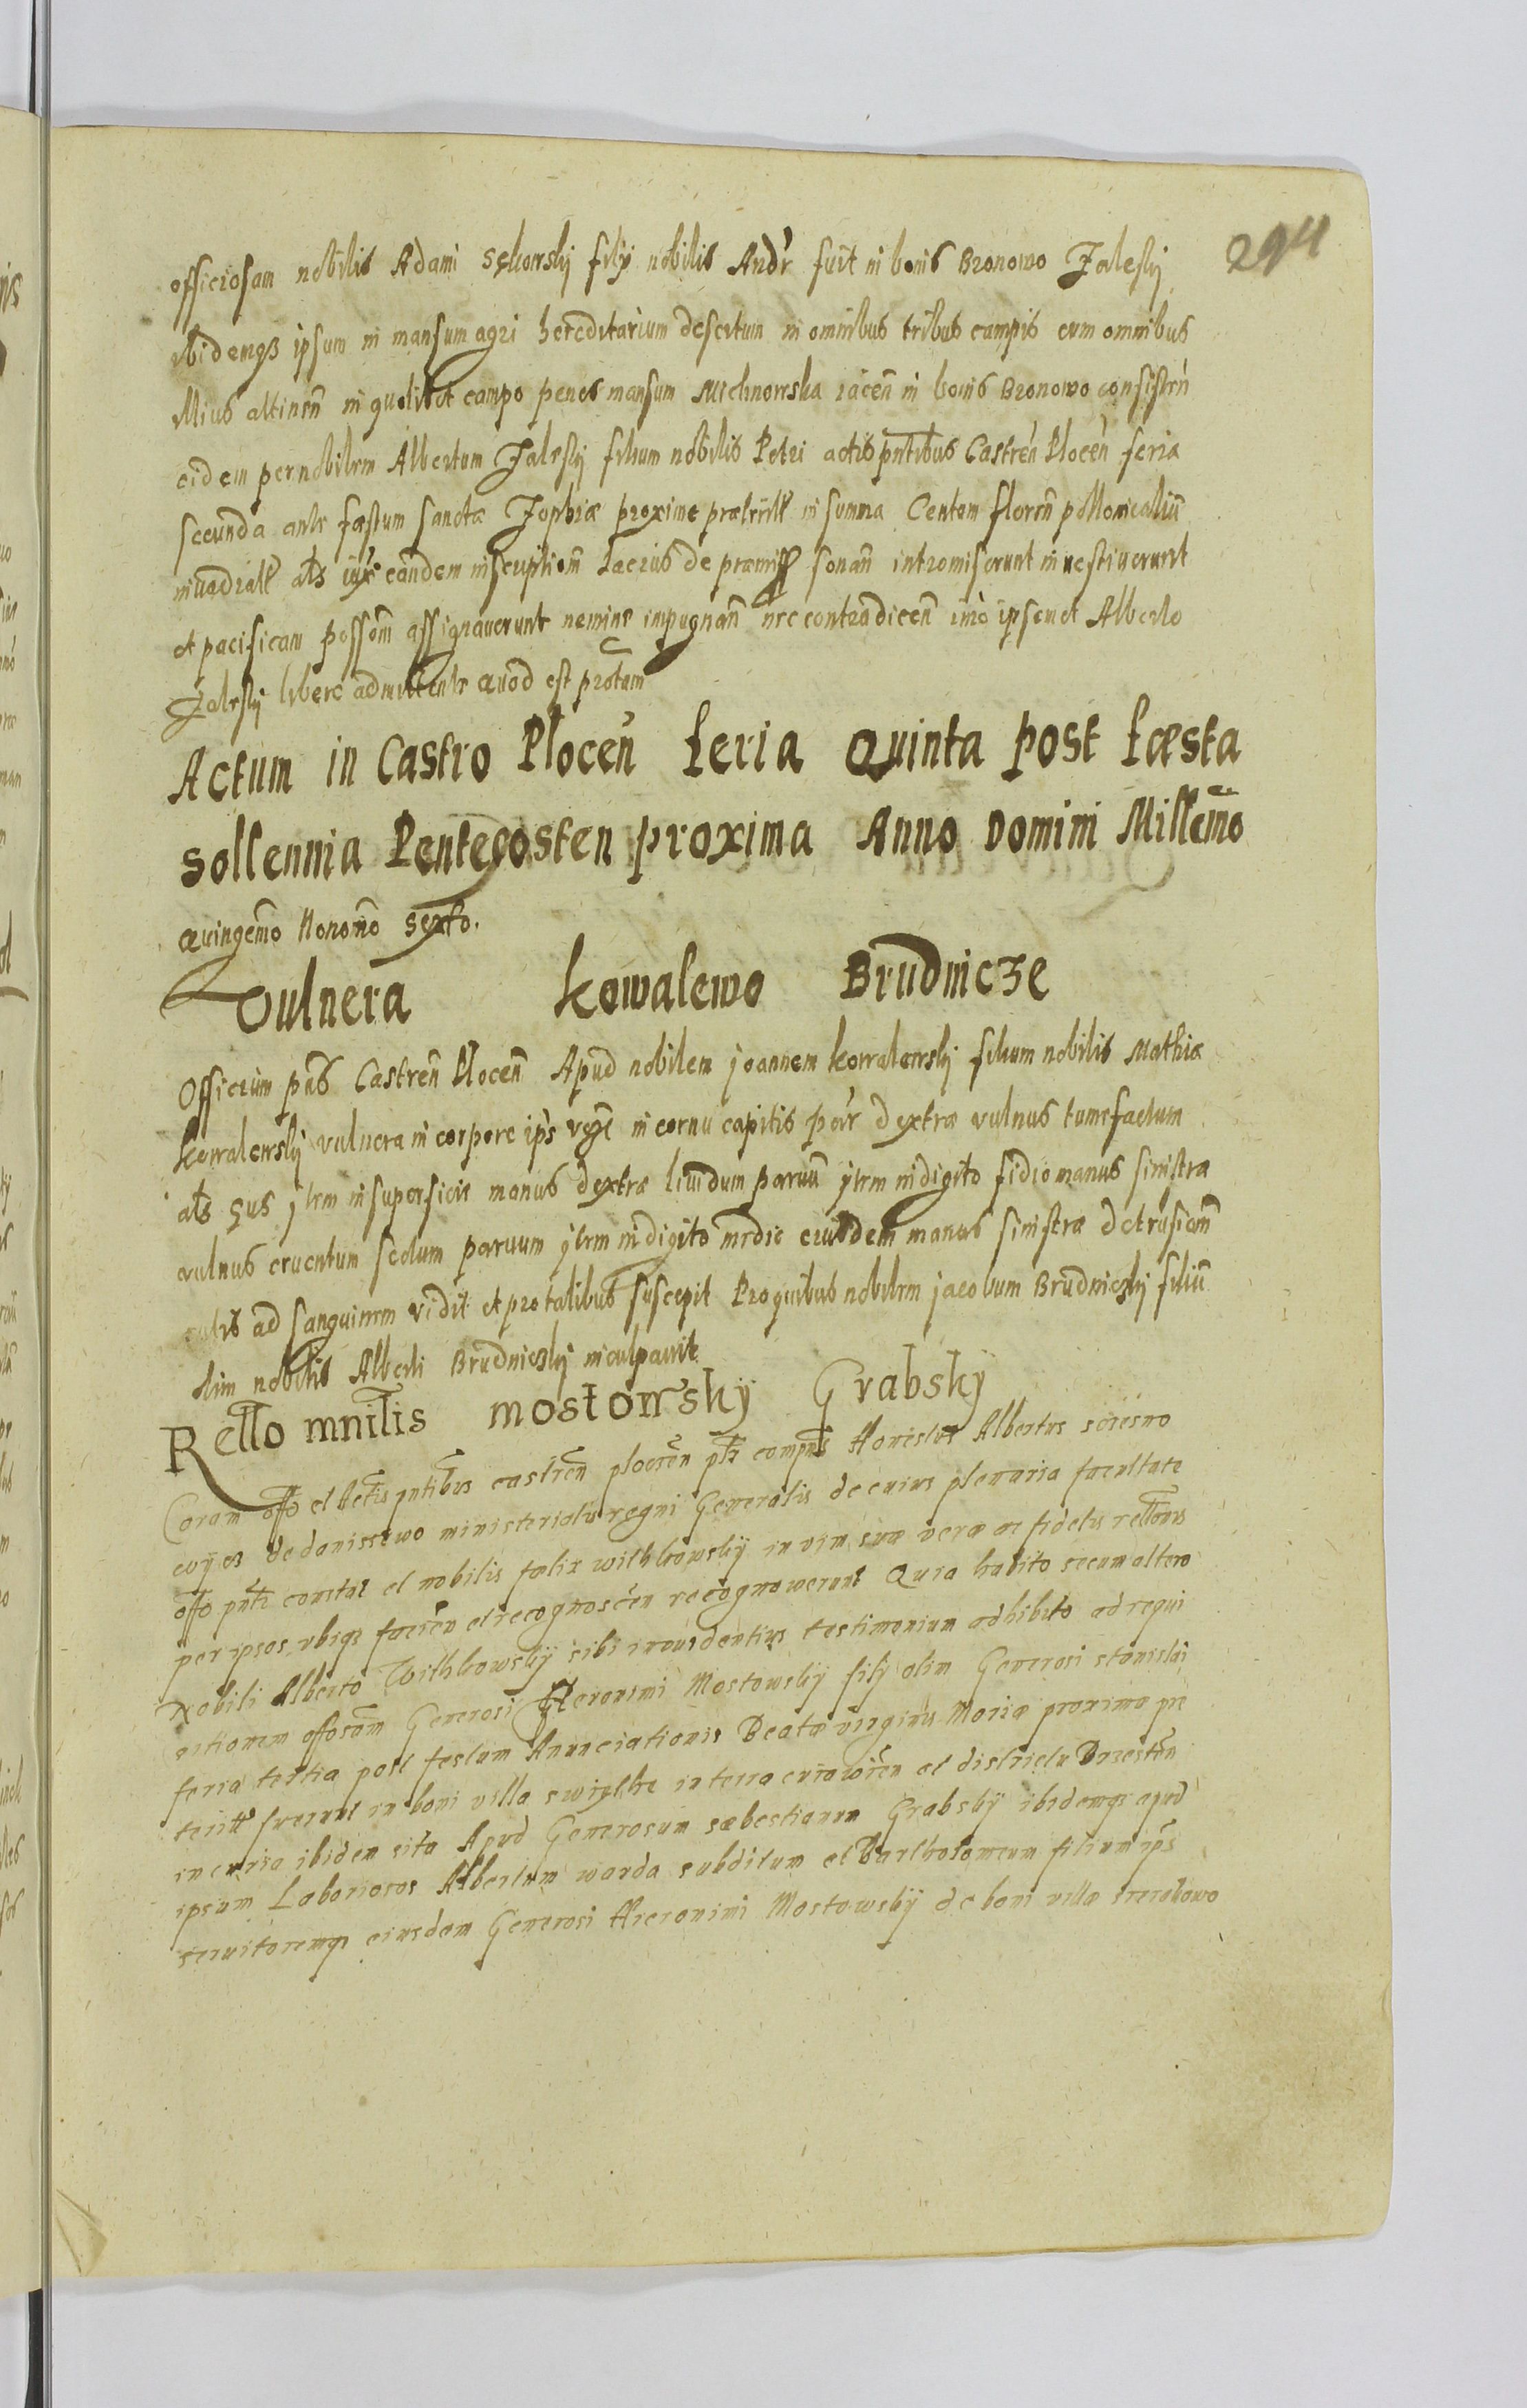 294
officiosam nobilis Adami Sękowskÿ filÿ nobilis Andr fuit in bonis Bronowo Zaleskÿ
ibidemqз ipsum in mansum agri hereditarium desertum in omnibus tribus campis cum omnibus
illius attinen̄ in quolibet campo penes mansum Michnowska iacen̄ in bonis Bronowo consisten̄
eidem per nobilem Albertum Zaleskÿ filium nobilis Petri actis pn̄tibus Castren̄ Plocen̄ feria
secunda ante fæstum sanctæ Zophiæ proxime præteritt in summa Centum floren̄ pollonicaliū
inuadiatt als iuxta eandem inscriptiom̄ Lacius de præmiss sonan̄ intromiserunt inuestiuerunt
et pacificam possom̄ assignauerunt nemine impugnan̄ nec contradicen̄ imò ipsemet Alberto
Zaleskÿ libere admittente Quod est protm̄
Actum in Castro Plocen̄ feria Quinta post fæsta
sollennia Pentecosten proxima Anno Domini Millem̄o
Quingem̄o Nonom̄o sexto.
Vulnera Kowalewo Brudnicze
Officium pn̄s Castren̄ Plocen̄ Apud nobilem Joannem Kowalewskÿ filium nobilis Mathiæ
Kowalewskÿ vulnera in corpore ips vz in cornu capitis par dextræ vulnus tumefactum
als gus jtem in superficie manus dextræ liuidum paruū jtem in digito fidio manus sinistræ
vulnus cruentum sectum paruum jtem in digito medio eiusdem manus sinistræ detrusiom̄
cutis ad sanguinem vidit et pro talibus suscepit Pro quibus nobilem jacobum Brudniczkÿ filiū
olim nobilis Alberti Brudniczkÿ inculpauit
Rello mn̄ilis Mostowskÿ Grabskÿ
Coram offo et actis pn̄tibus castren̄ plocen̄ ptr compns Honestus Albertus sciesno
de danissewo ministerialis regni Generalis de cuius plenaria facultate
offo pn̄ti constat et nobilis fælix withkowskÿ in vim suæ veræ ac fidelis rellonis
per ipsos vbiqз facien̄ et recognoscen̄ recognowerunt Quia habito secum altero
nobili Alberto Withkowskÿ sibi in euidentius testimonium adhibito ad requi
sitionem offosam̄ Generosi Hieronimi Mostowskÿ filÿ olim Generosi stanislai
feria tertia post festum Anunciationis Beatæ virginis Mariæ proxima pre
teritt fuerunt in boni villa swiqthe in terra cuiawien̄ et districtu Brzesten̄
in curia ibidem sita Apud Generosum sæbestianum Grabskÿ ibidemqз apud
ipsum Laboriosos Albertum warda subditum et Bartholomeum filium ips
seruitoremqз eiusdem Generosi Hieronimi Mostowskÿ de boni villa